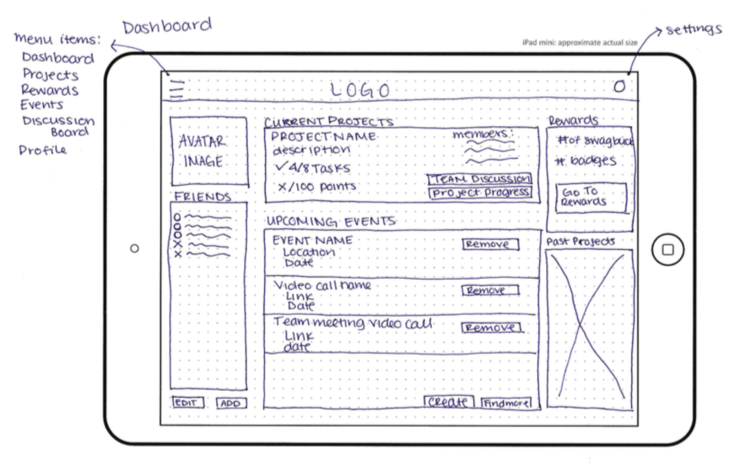 Dashboard
menu items:
Dashboard
Projects
Rewards
Events
Discussion
Board
Profile
settings
iPad mini: approximate actual size
LOGO
AVATAR
IMAGE
FRIENDS
EDIT
ADD
CURRENT PROJECTS
PROJECT NAME
description
✓4/8 Tasks
x/100 points
members:
TEAM DISCUSSION
Project Progress
UPCOMING EVENTS
EVENT NAME
Location
Date
Remove
Video call name
Link
Date
Remove
Team meeting video call
Link
date
Remove
Create
Findmore
Rewards
#of swagbuck
# badges
GO TO
Rewards
Past Projects